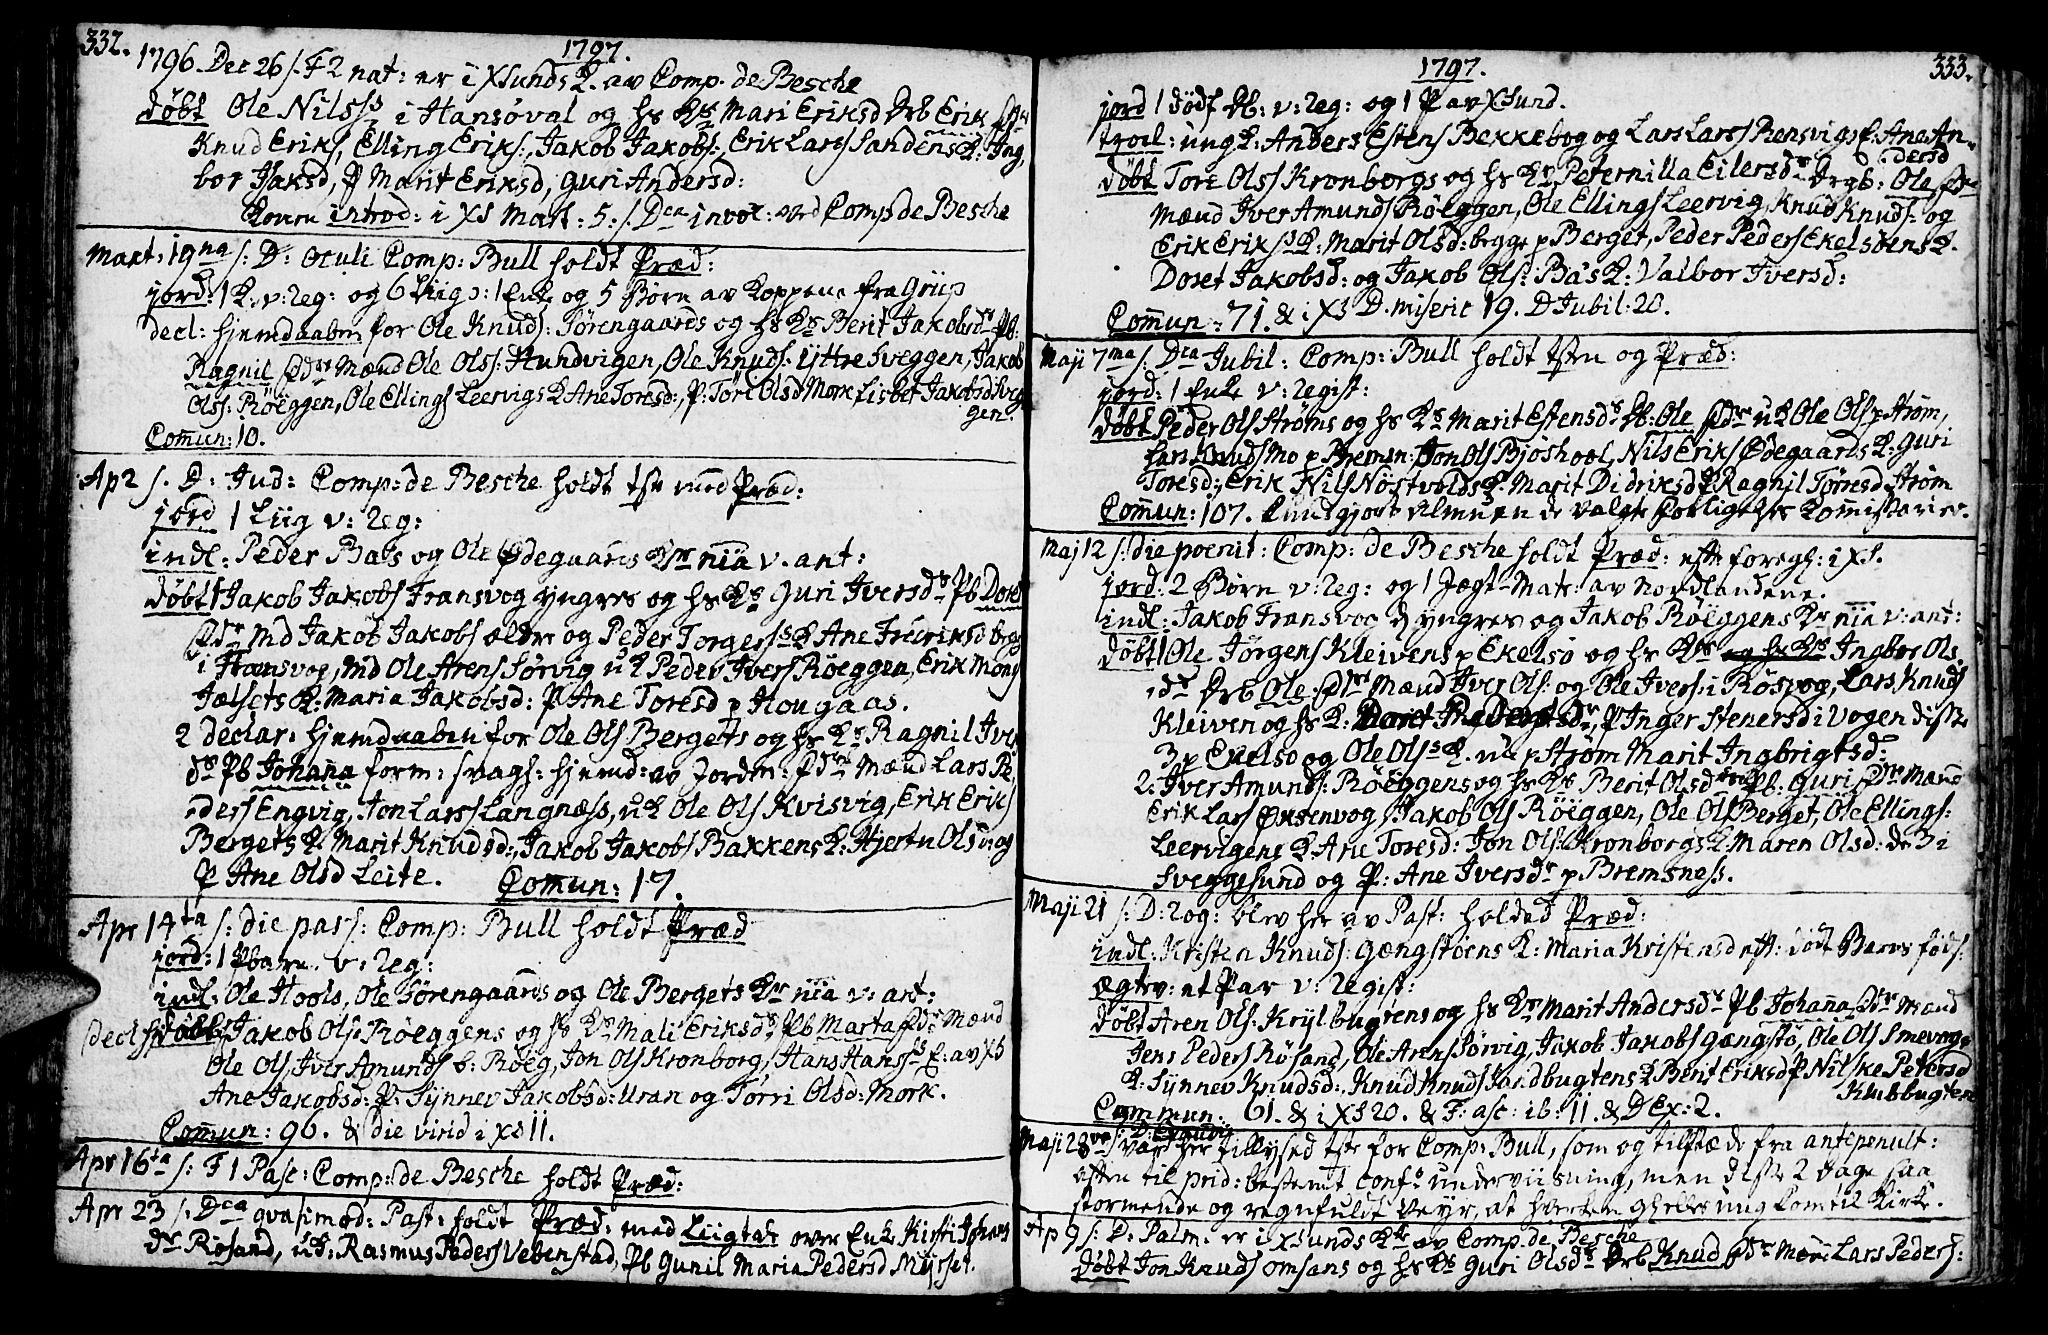 332.
1797.
1796. Dec 26 /: F 2 nat: er i XSunds K. av Comp. de Besche
døbt Ole Nilss: i Hansøval og hs Kn Mari Eriksd Drb Erik
Knud Eriks, Elling Eriks:, Jakob Jakobs:, Erik Larss Sandens K: Ing,
bor Isaksd, P Marit Eriksd, Guri Andersd:
Konen introd: i XS Mart: 5: /: Dca invoc: ved Comp de Besche
Mart: 19na /: D: Oculi Comp: Bull holdt Præd:
jord: 1 K: v: reg: og 6 Liig: 1 Enke og 5 Børn av Koppene fra Grip
decl: hjemdaaben for Ole Knuds: Sørengaards og hs Kn Berit Jakobsdr Pb:
Ragnil Mænd Ole Ols: Hundvigen, Ole Knuds: Yttre Sveggen, Jakob
Ols: Røeggen, Ole Ellings Leervigs K Ane Toresd:, P: Tore Olsd Mork, Lisbet Jakobsd Sveg
gen.
Comun: 10.
Ap 2 /: D: Jud: Comp: de Besche holdt tst med Præd:
jord 1 Liig v: reg:
indl: Peder Bals og Ole Ødegaards Knr nia v. ant:
døbt 1 Jakob Jakobs Fransvog yngres og hs Kn Guri Iversdr Pb Doret
Md Jakob Jakobs ældre og Peder Torgerss K Ane Fredriksd begge
i Fransvog, Md Ole Arens Sørvig uK Peder Ivers Røeggen, Erik Mons
Jælsets K: Maria Jakobsd: P Ane Toresd p Hougaas.
2 declar: hjemdaaben for Ole Ols Bergets og hs Kn Ragnil Iver
dr Pb Johana form: svagh: hjemd: av Jordm: Mænd Lars Pe,
ders Engvig, Jon Larss Langnæss, uK Ole Ols Kvisvig, Erik Eriks
Bergets K: Marit Knudsd:, Jakob Jakobs Bakkens K: Hjertru Olsd: og
P Ane Olsd Leite. Comun: 17.
Apr 14ta /: die pass: Comp: Bull holdt Præd
jord: 1 Pbarn v: reg:
indl: Ole Hools, Ole Sørengaards og Ole Bergets Knr nia v: ant:
døbt Jakob Ols: Røeggens og hs Kn Mali Eriksdr Pb Marta Mænd
Ole Ols, Iver Amunds b: Røeg, Jon Ols Kronborg, Hans Hanss E: av XS
Ane Jakobsd: P: Synnev Jakobsd: Uran og Torri Olsd: Mork.
Comun: 96. & die virid i XS 11.
Apr 16ta /: F 1 Pasc: Comp: de Besche holdt Præd:
Apr 23 /: Dca qvasimod: Past: holdt Præd: med Liigtale over Enke Kirsti Johans
dr Røsand, Rasmus Peders Vebenstad, Pb Gunil Maria Pedersd Myrset.
1797.
333.
jord 1 dødf Pb: v: reg: og 1 P av XSund.
trol: ungK: Anders Estens Bekkebog og Lars Larss Rensvig: E: Ane An,
dersd
døbt Tore Olss Kronborgs og hs Kn Peternilla Eilersdr Drgb: Ole
Mænd Iver Amunds Røeggen, Ole Ellings Leervig, Knud Knuds: og
Erik Eriks K: Marit Olsd: begge p Berget, Peder Peders Ekelsøens K.
Doret Jakobsd: og Jakob Ols: Bås K: Valbor Iversd:
Comun: 71. & i XS D. miseric 19. D Jubil: 20.
Maji 7ma /: Dca Jubil: Comp: Bull holdt tsten og Præd:
jord: 1 Enke v: regist:
døbt Peder Ols Strøms og hs Kn Marit Estensdr Pb: Ole uK Ole Ols p Strøm,
Lars Knuds Mo p Bremsn: Jon Ols Bjøshool, Nils Eriks Ødegaards K: Guri
Toresd:, Erik Nils Nøstvolds K: Marit Didriksd P Ragnil Tørresd Strøm
Comun: 107. kundgjort Almuen de valgte Forligelses Komissarier.
Maj 12 /: die poenit: Comp: de Besche holdt Præd: efter foregh: i XS.
jord: 2 Børn v: reg: og 1 Jægt-Matr: av Nordlandene.
indl: Jakob Fransvog d yngres og Jakob Røeggens Knr nia v: ant:
døbt 1 Ole Jørgens Kleivens p Ekelsø og hs Kn Ingbor Ols,
dr Drb Ole Mænd Iver Ols: og Ole Ivers: i Røsvog, Lars Knuds
Kleiven og hs K: Doret Pedersdr, P Inger Stenersd i Vogen disse
3 p Ekelsø og Ole Olss K. ude p Strøm Marit Ingbrigtsd:
2. Iver Amunds: Røeggens og hs Kn Berit Olsd Pb: Guri Mænd
Erik Lars Oksenvog Jakob Ols Røeggen, Ole Ols Berget, Ole Ellings:
Leervigens K: Ane Toresd: Jon Ols: Kronborgs K: Maren Olsd: de 3 i
Sveggesund og P: Ane Iversdr p Bremsness.
Maji 21 /: D: rog: blev her av Past: holded Præd:
indl: Kristen Knuds: Gængstøens K: Maria Kristensd eft: dødt Barns føds:
ægtev: et Par v: regist:
døbt Aren Ols: Krylbugtens og hs Kn Marit Andersdr Pb Johana Mænd
Jens Peders Røsand, Ole Arens Sørvig, Jakob Jakobs Gængstø, Ole Ols Smevogs
K: Synnev Knudsd:, Knud Knuds Sandbugtens K Berit Eriksd P Nilske Petersd
Klubbugten
Commun: 61. & i XS 20. & F: asc: ib: 11. & D Ex: 2.
Maji 28va /: D: Exaudi
var her tillysed tste for Comp: Bull, som og tilstæde fra antepenult:
aften til prid: bestemt Confs underviisning, men disse 2 dage saa
stormende og regnfuldt Veyr, at hverken gl eller ung kom til Kirke.
Ap 9 /: D: Palm. er i XSunds Ke av Comp. de Besche
døbt Jon Knuds Omsans og hs Kn Guri Olsdr Drb Knud Mænd Lars Peders: